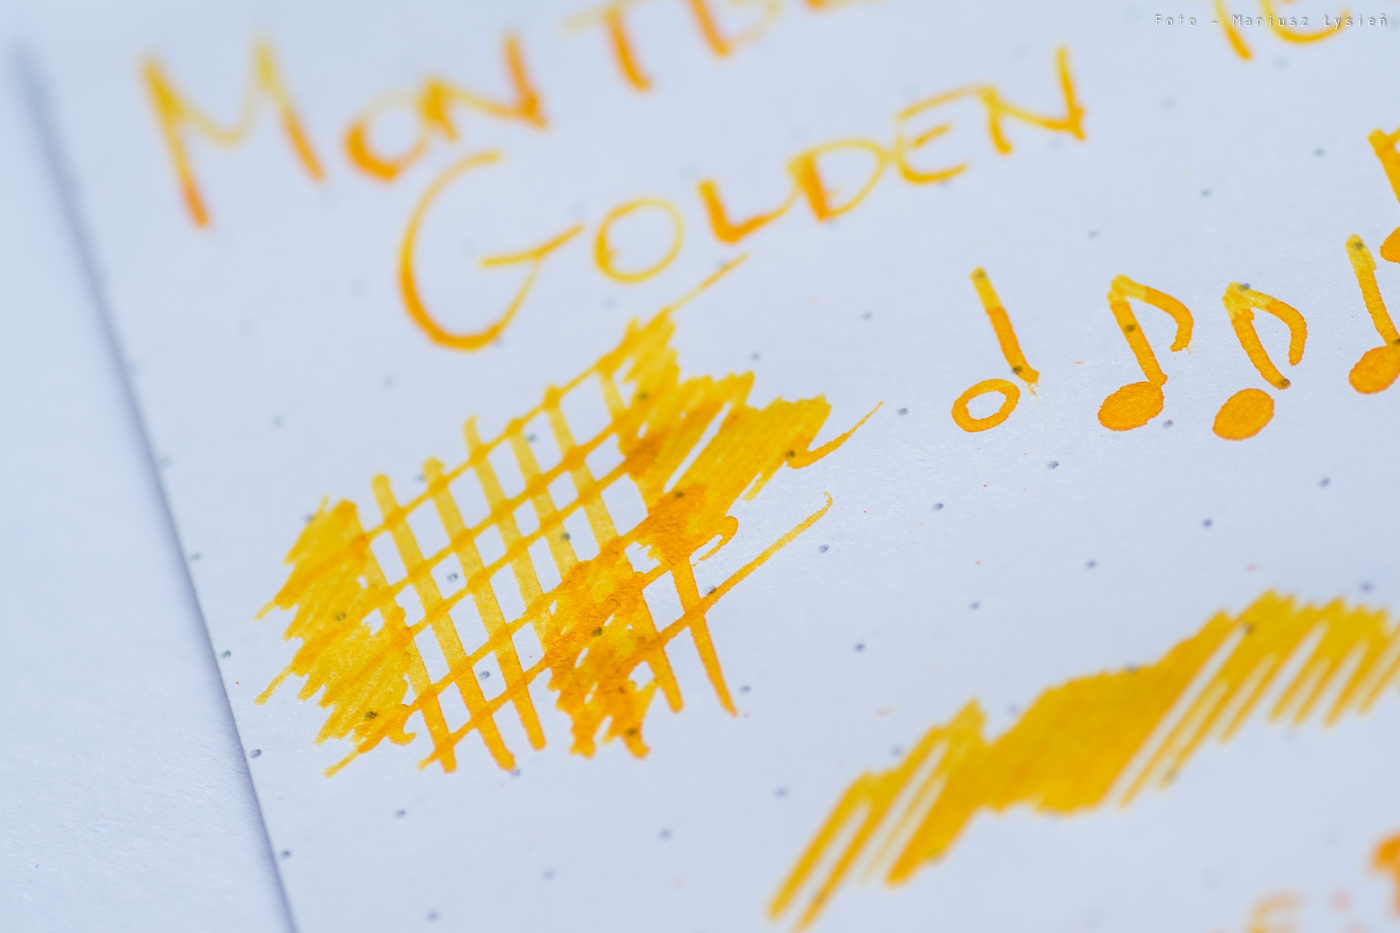 Foto - Mariusz Łysień
MONTB
GOLDEN